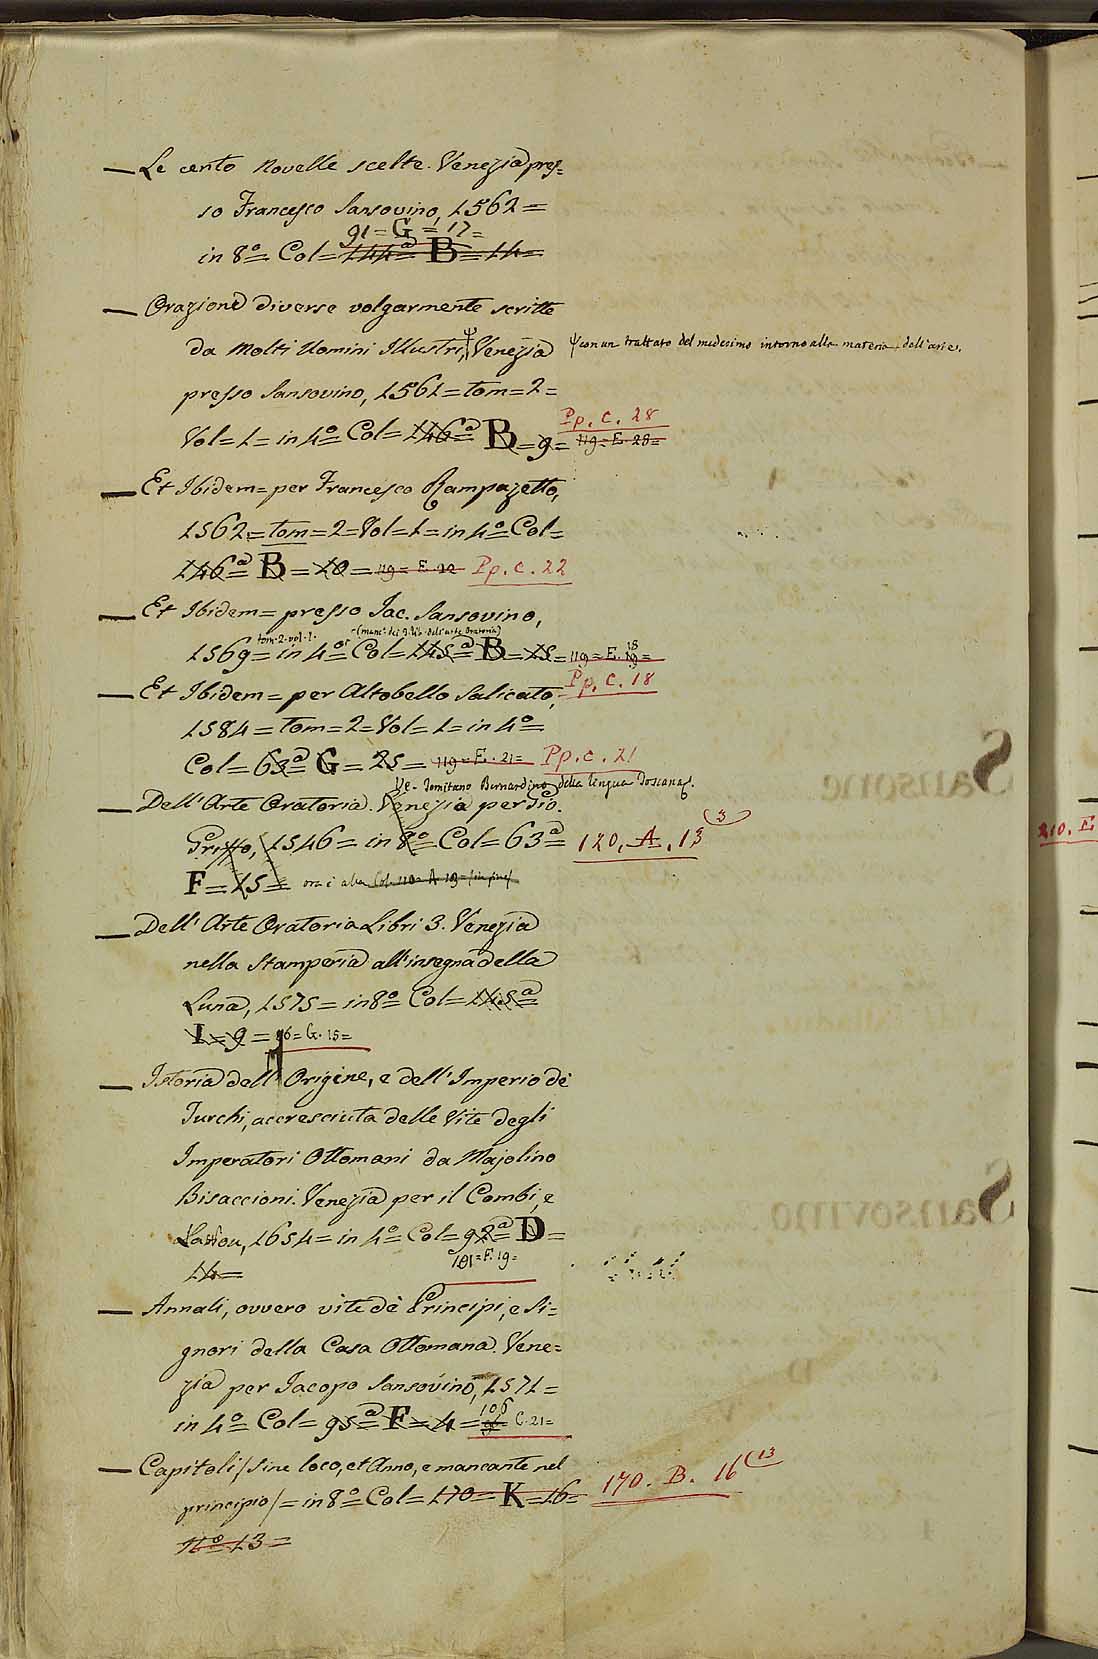 — Le cento Novelle scelte. Venezia pres=
so Francesco Sansovino, 1562=
91=G=17=
in 8º= Col= 144ª= B=14=
— Orazioni diverse volgarmente scritte
da Molti Uomini Illustri, ψ Venezia
ψ con un trattato del medesimo intorno alla materia dell'arte.
presso Sansovino, 1561=tom=2=
Pp. C. 28
Vol=1=in 4º Col= 146ª= B=9= 119=E.28=
— Et Ibidem= per Francesco Rampazetto,
1562=tom=2=Vol=1=in 4º= Col=
146ª= B=10= 119=E.22 Pp. C. 22
— Et Ibidem= presso Jac. Sansovino,
tom. 2. vol. 1. (manc. dei 3. lib. dell'arte Oratoria)
1569=in 4º= Col=145ª B=15= 119=E. 18
Pp. C. 18
— Et Ibidem= per Altobello Salicato,
1584=tom=2=Vol=1=in 4º=
Col= 63ª= G=25= 119=E.21= Pp. C. 21
Ve- Tomitano Bernardino della lingua Toscana.
— Dell'Arte Oratoria. Venezia per Gio.
Griffo, 1546=in 8º Col=63ª= 120. A. 13 (3
F=15= ora è alla Col. 110 A 19
— Dell'Arte Oratoria Libri 3. Venezia
nella Stamperia all'insegna della
Luna, 1575=in 8º= Col=145ª=
I=9= 96=G.15=
— Istoria dell'Origine, e dell'Imperio de'
Turchi, accresciuta delle Vite degli
Imperatori Ottomani da Majolino
Bisaccioni. Venezia per il Combi, e
LaNou, 1654=in 4º= Col=92ª D=
101=F.19=
14=
— Annali, ovvero vite de' Principi, e Si=
gnori della Casa Ottomana. Vene=
zia per Jacopo Sansovino, 1571=
106
in 4º= Col=95ª= F=4= C.21=
— Capitoli/sine loco, et Anno, e mancante nel
170. B. 16 (13
principio/=in 8º= Col=170=K=16=
Nº=13=
210. E